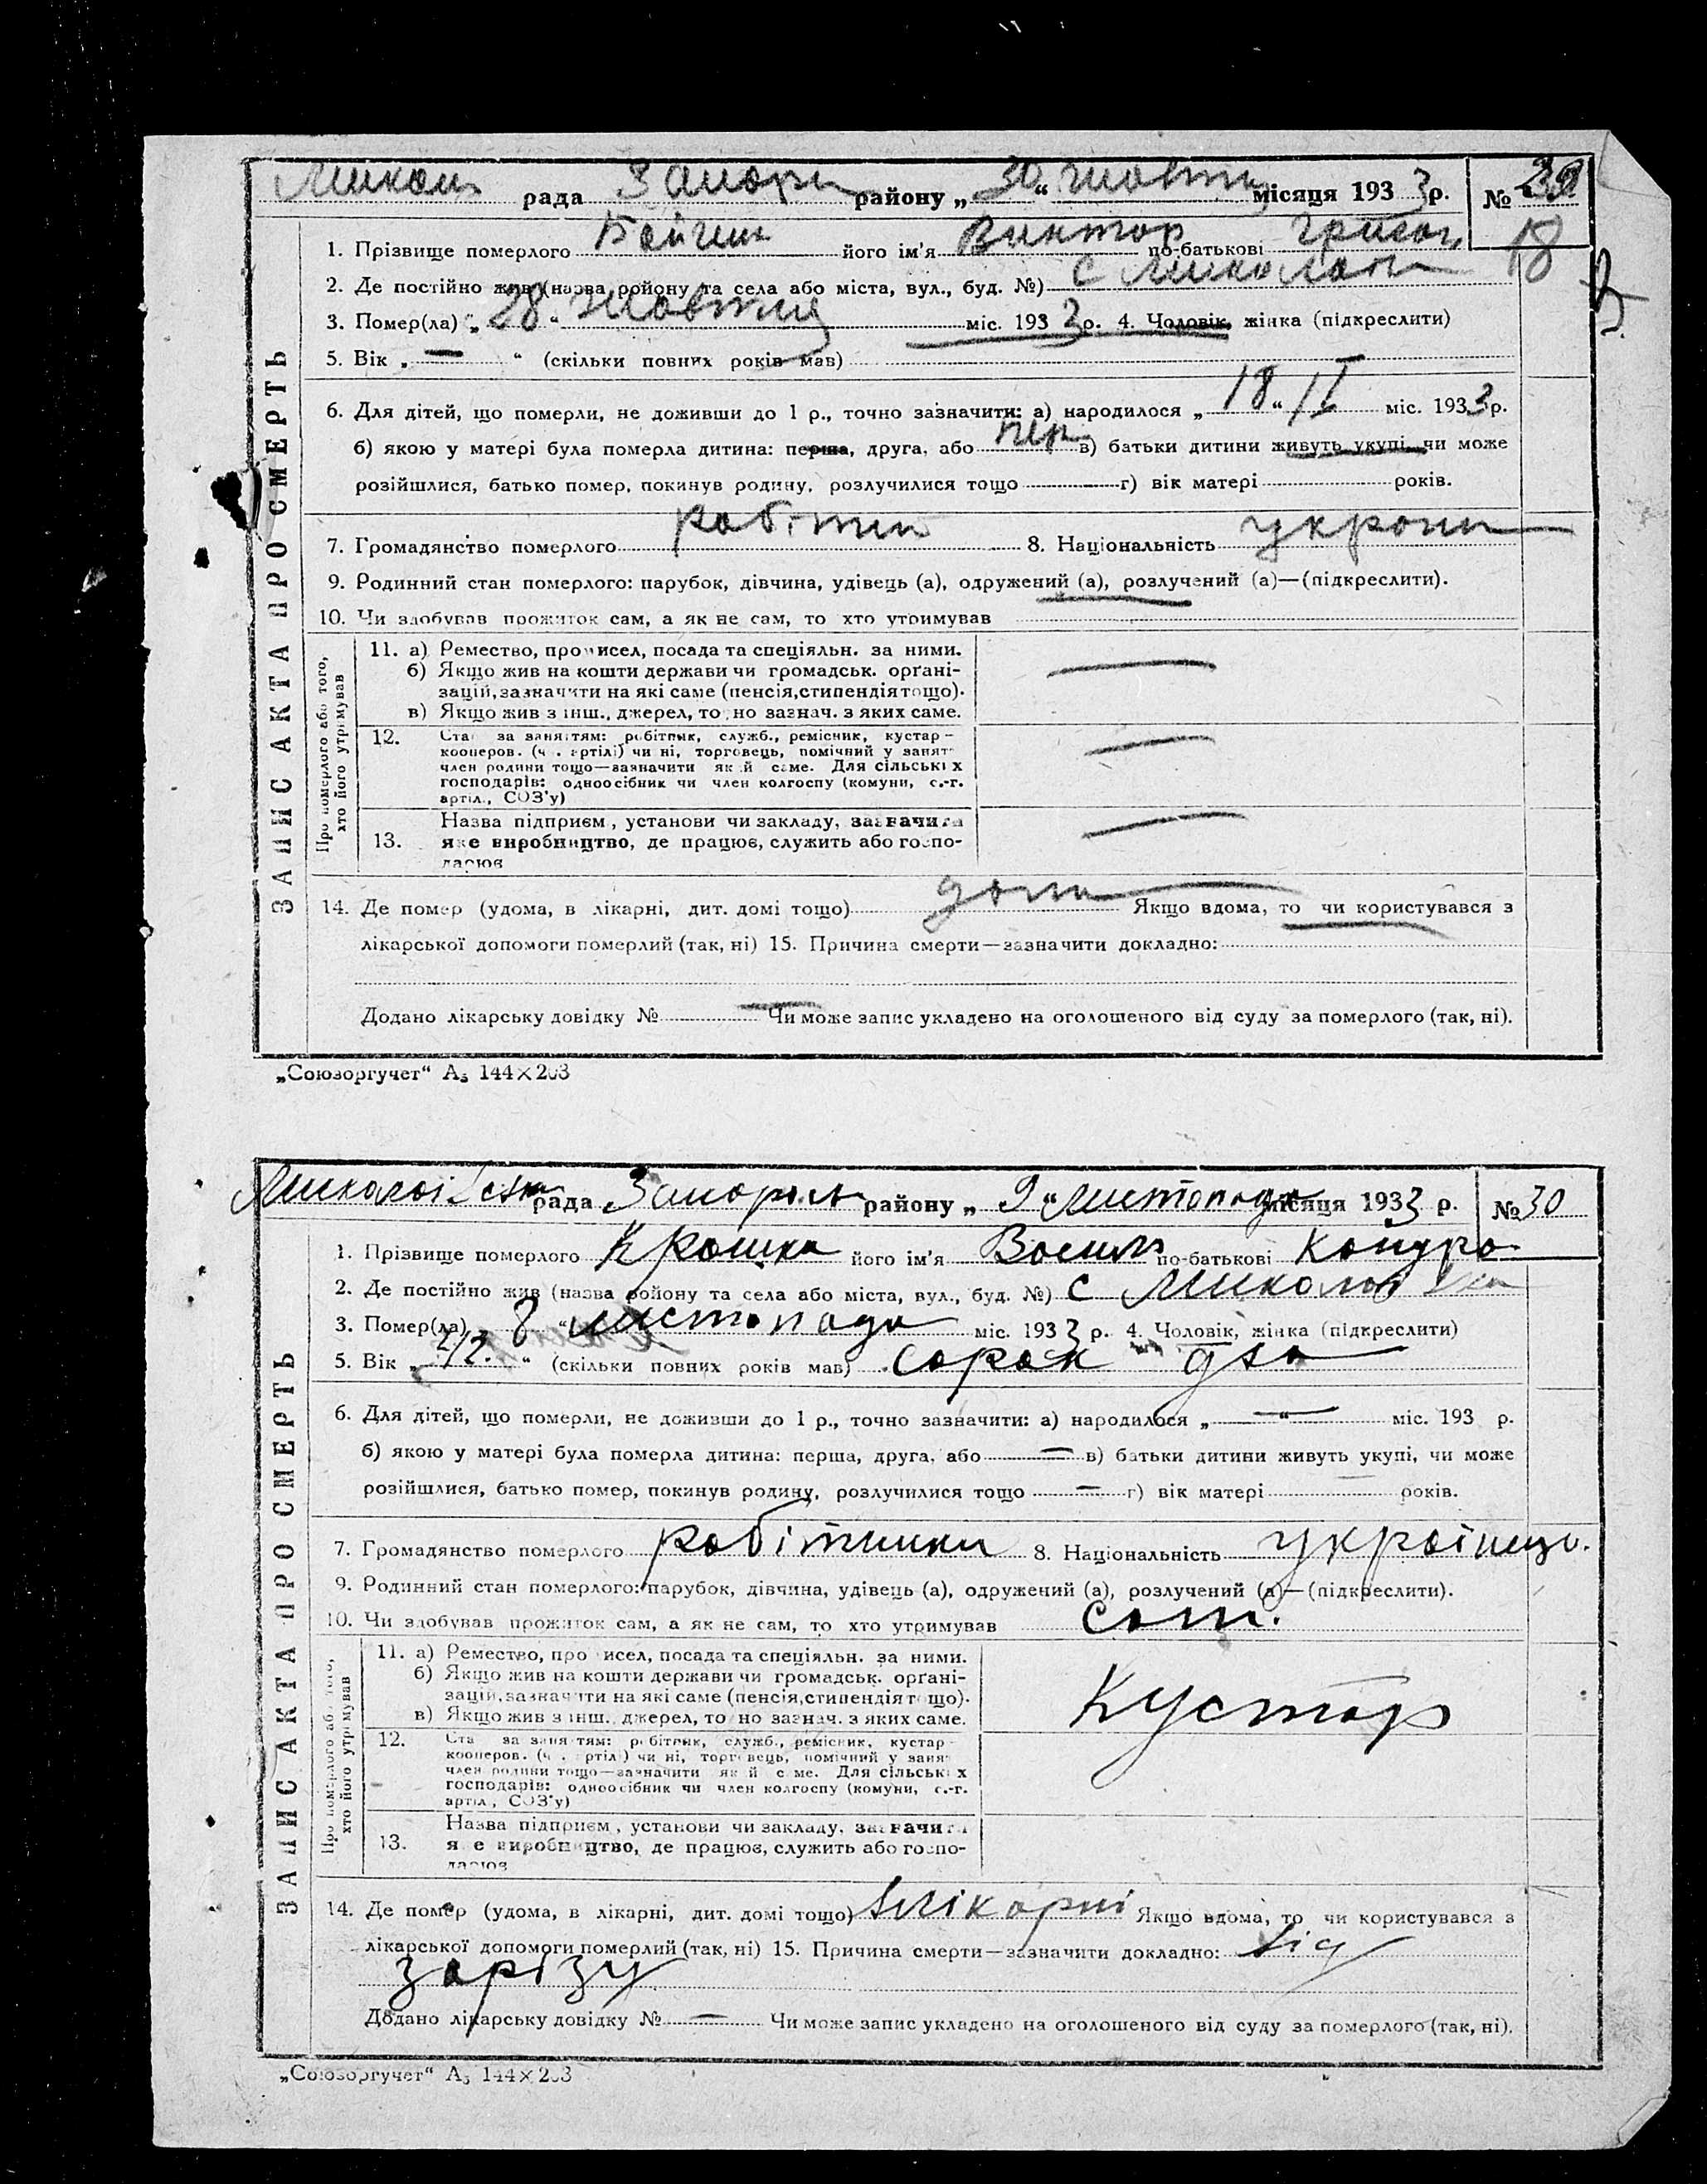 Микол рада Запоріз району „30“ жовтня місяця 1933 р. № 29
18
1. Прізвище померлого його ім'я Виктор по-батькові Григор
2. Де постійно жив (назва району та села або міста, вул., буд. №) с Микола
3. Помер(ла) „28“ жовтня міс. 1933 р. 4. Чоловік, жінка (підкреслити)
5. Вік „—“ (скільки повних років мав)
6. Для дітей, що померли, не доживши до 1 р., точно зазначити: а) народилося „18“ міс. 1933 р.
б) якою у матері була померла дитина: перша, друга, або пер в) батьки дитини живуть укупі, чи може
розійшлися, батько помер, покинув родину, розлучилися тощо г) вік матері років.
7. Громадянство померлого робітни 8. Національність україн
9. Родинний стан померлого: парубок, дівчина, удівець (а), одружений (а), розлучений (а)—(підкреслити).
10. Чи здобував прожиток сам, а як не сам, то хто утримував
ЗАПИС АКТА ПРО СМЕРТЬ
Про померлого або того,
хто його утримував
11. а) Ремество, промисел, посада та спеціяльн. за ними. —
б) Якщо жив на кошти держави чи громадськ. орґані-
зацій, зазначити на які саме (пенсія, стипендія тощо).
в) Якщо жив з інш., джерел, точно зазнач. з яких саме.
12. Стан за заняттям: робітник, служб., ремісник, кустар— —
кооперов. (ч. артілі) чи ні, торговець, помічний у занят
член родини тощо—зазначити який саме. Для сільських
господарів: одноосібник чи член колгоспу (комуни, с.-г.
артіл., СОЗ'у)
Назва підприєм., установи чи закладу, зазначити
13. яке виробництво, де працює, служить або госпо- —
дарює
14. Де помер (удома, в лікарні, дит. домі тощо) дома Якщо вдома, то чи користувався з
лікарської допомоги померлий (так, ні) 15. Причина смерти—зазначити докладно:
Додано лікарську довідку № — Чи може запис укладено на оголошеного від суду за померлого (так, ні).
„Союзоргучет“ А₅ 144×203
Миколаївська рада Запорізьк району „9“ листопада місяця 1933 р. № 30
1. Прізвище померлого Крошка його ім'я Василь по-батькові Кондра
2. Де постійно жив (назва району та села або міста, вул., буд. №) с Миколаївка
3. Помер(ла) 8 „листопада міс. 1933 р. 4. Чоловік, жінка (підкреслити)
5. Вік „42.“ (скільки повних років мав) сорок два
6. Для дітей, що померли, не доживши до 1 р., точно зазначити: а) народилося „—“ міс. 193 р.
б) якою у матері була померла дитина: перша, друга, або — в) батьки дитини живуть укупі, чи може
розійшлися, батько помер, покинув родину, розлучилися тощо — г) вік матері років.
7. Громадянство померлого робітники 8. Національність українець.
9. Родинний стан померлого: парубок, дівчина, удівець (а), одружений (а), розлучений (а)—(підкреслити).
10. Чи здобував прожиток сам, а як не сам, то хто утримував сам.
ЗАПИС АКТА ПРО СМЕРТЬ
Про померлого або того,
хто його утримував
11. а) Ремество, промисел, посада та спеціяльн. за ними.
б) Якщо жив на кошти держави чи громадськ. орґані-
зацій, зазначити на які саме (пенсія, стипендія тощо).
в) Якщо жив з інш., джерел, точно зазнач. з яких саме.
Кустар
12. Стан за заняттям: робітник, служб., ремісник, кустар—
кооперов. (ч. артілі) чи ні, торговець, помічний у занят
член родини тощо—зазначити який саме. Для сільських
господарів: одноосібник чи член колгоспу (комуни, с.-г.
артіл., СОЗ'у)
Назва підприєм., установи чи закладу, зазначити
13. яке виробництво, де працює, служить або госпо-
дарює
14. Де помер (удома, в лікарні, дит. домі тощо) в лікарні Якщо вдома, то чи користувався з
лікарської допомоги померлий (так, ні) 15. Причина смерти—зазначити докладно: від
зарізу
Додано лікарську довідку № — Чи може запис укладено на оголошеного від суду за померлого (так, ні).
„Союзоргучет“ А₅ 144×203